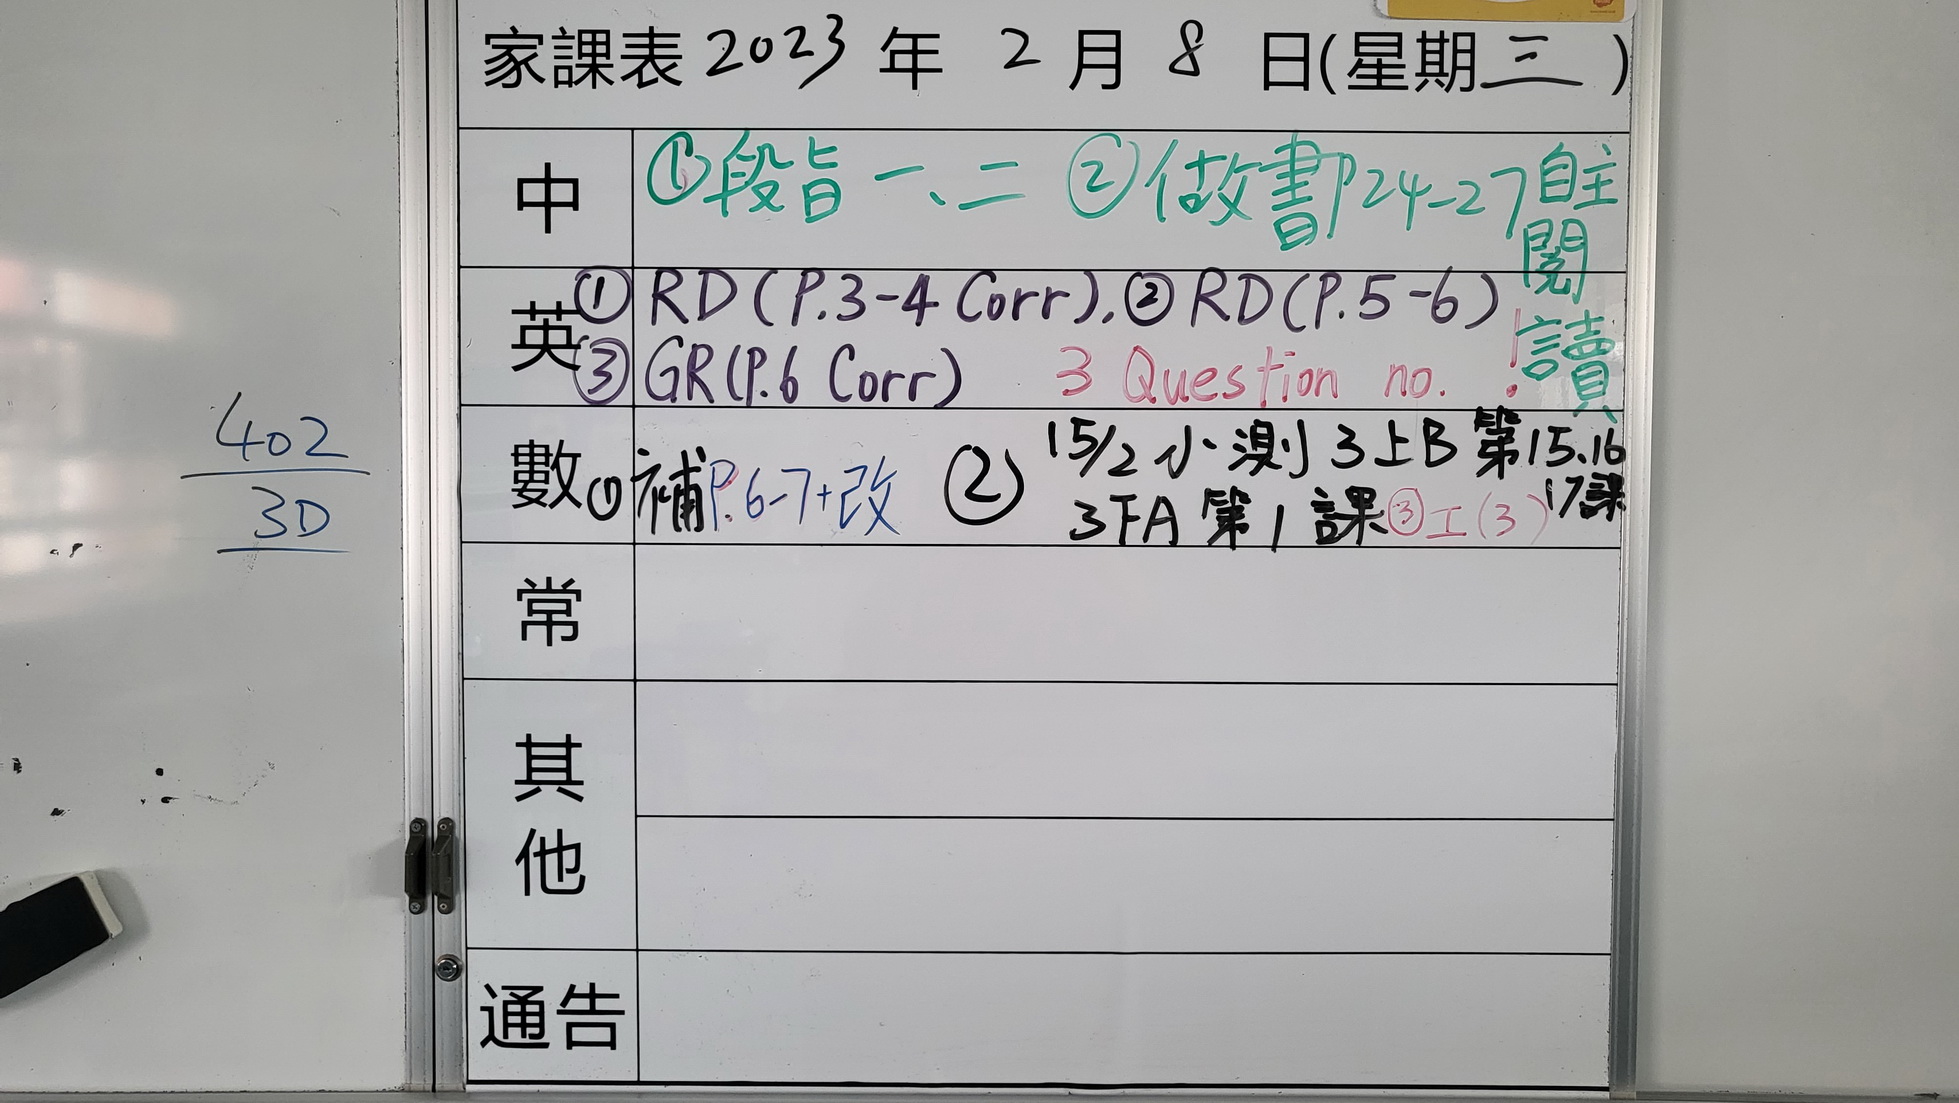 家課表 2023 年 2 月 8 日(星期三)
中 ①段旨一、二 ②做書P24-27 自主
閱
讀
英 ① RD (P.3-4 Corr), ② RD (P.5-6)
③ GR (P.6 Corr) 3 Question no. !
數 ① 補P.6-7+改 ② 15/2 小測 3上B 第15.16
17課
3下A 第1課 ③工(3)
常
其
他
通告
402
3D